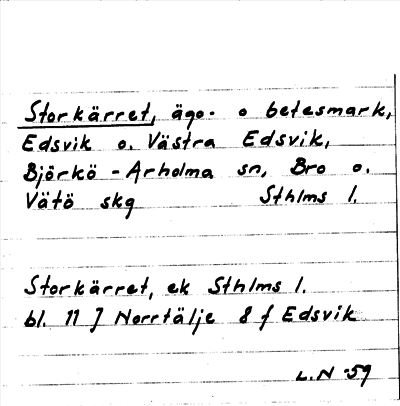 Storkärret, ägo- o betesmark,
Edsvik o. Västra Edsvik,
Björkö-Arholma sn, Bro o.
Vätö skg Sthlms l.
Storkärret, ek Sthlms l.
bl. 11 J Norrtälje 8 f Edsvik
L.N -59